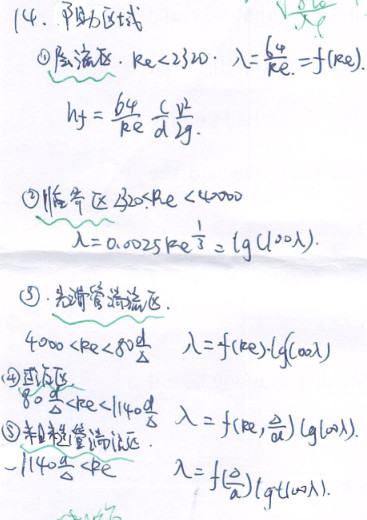 14. 阻力区域
①层流区. Re<2320. λ=64/Re=f(Re).
hf=64/Re l/d v²/2g.
②临界区 2320<Re<40000
λ=0.0025Re^(1/3)=lg(100λ).
③.光滑管湍流区.
4000<Re<80d/Δ λ=f(Re).lg(100λ)
④过渡区.
80d/Δ<Re<1140d/Δ λ=f(Re,Δ/d)lg(100λ).
⑤粗糙管湍流区.
1140d/Δ<Re λ=f(Δ/d)lg(100λ).